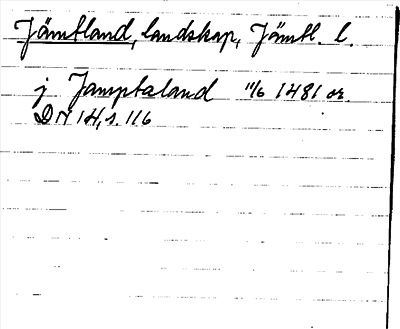 Jämtland, landskap, Jämtl. l.
j Jamptaland 11/6 1481 or.
DN 14, s. 116